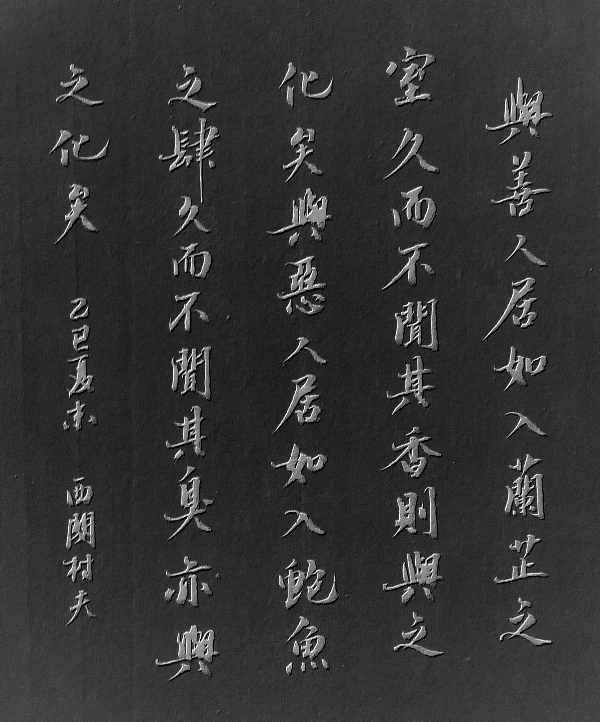 與善人居如入蘭芷之
室久而不聞其香則與之
化矣與惡人居如入鲍魚
之肆久而不聞其臭亦與
之化矣 乙巳夏末 西關村夫